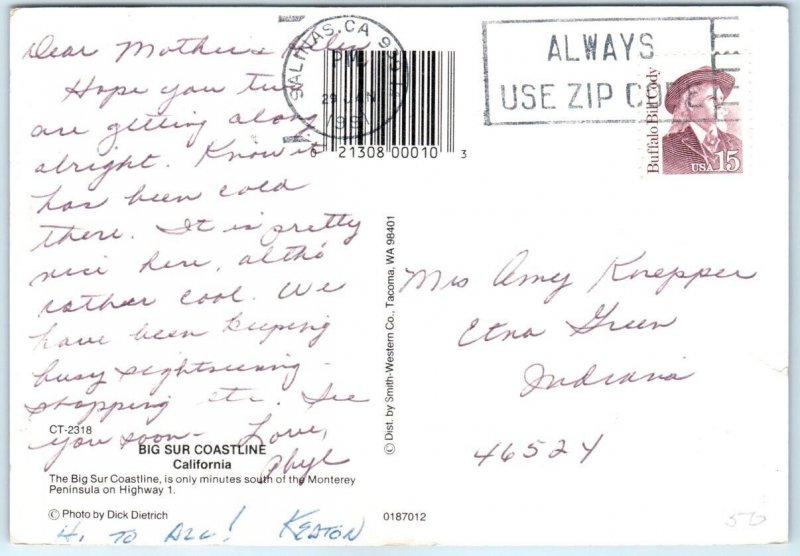 Dear Mother & Allen
Hope you two
are getting along
alright. Know it
has been cold
there. It is pretty
nice here, altho'
rather cool. We
have been keeping
busy sightseeing -
shopping etc. See
you soon - Love,
Phyl
CT-2318
BIG SUR COASTLINE
California
The Big Sur Coastline, is only minutes south of the Monterey
Peninsula on Highway 1.
© Photo by Dick Dietrich
Hi TO ALL! KEATON
SALINAS, CA
PM
29 JAN
1991
0 21308 00010 3
© Dist. by Smith-Western Co., Tacoma, WA 98401
0187012
ALWAYS
USE ZIP CODE
Buffalo Bill Cody
USA 15
Mrs Amy Knepper
Etna Green
Indiana
46524
50